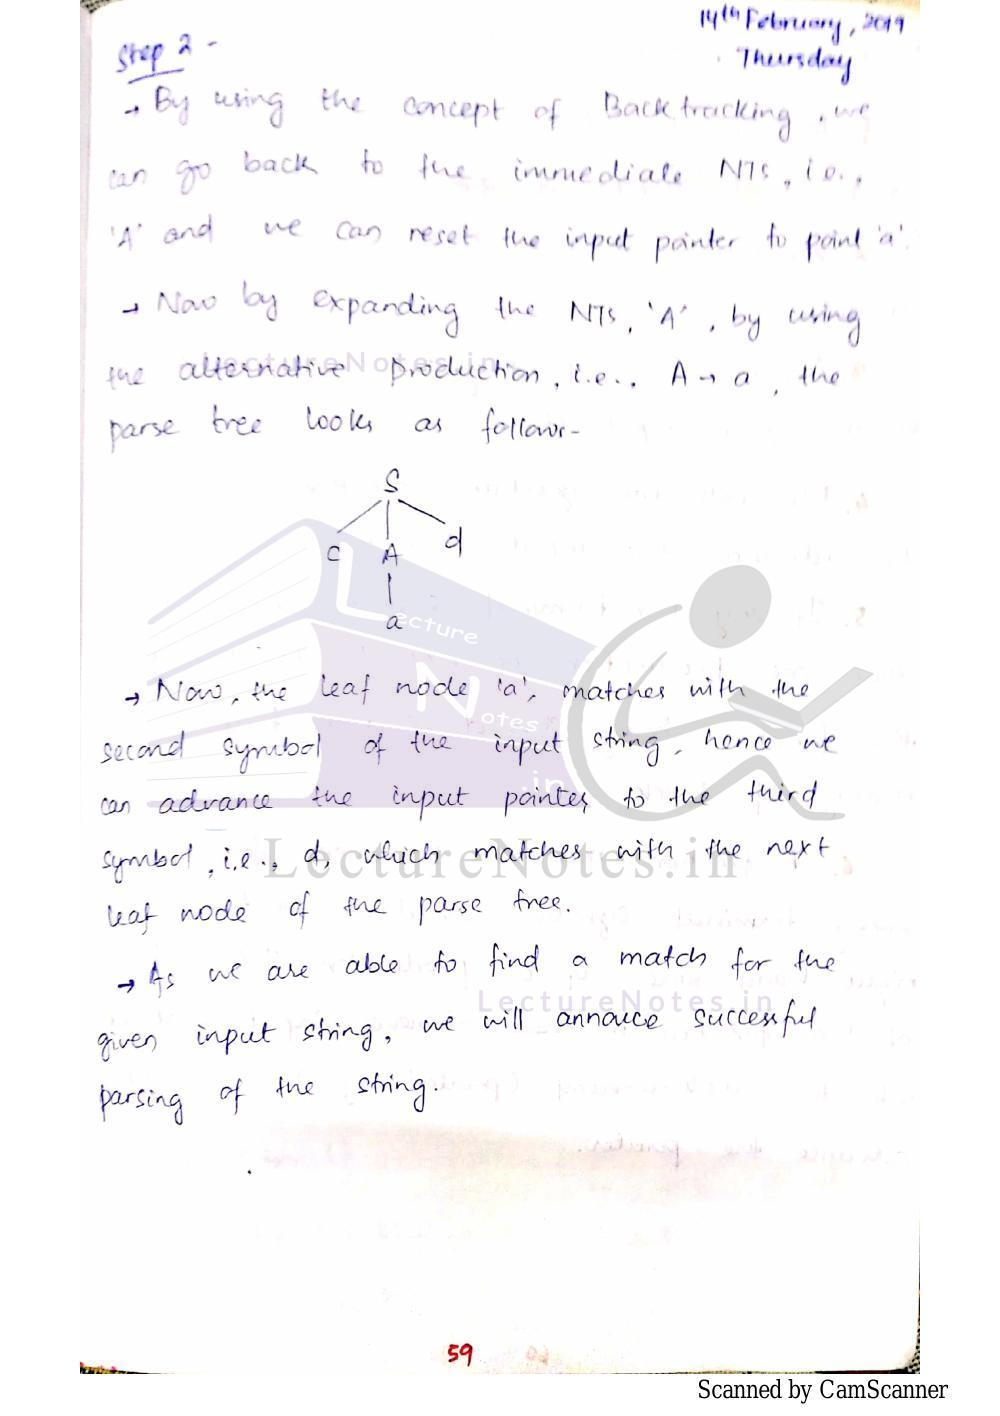 14th February, 2019
Thursday
Step 2 -
→ By using the concept of Backtracking, we
can go back to the immediate NTs, i.e.,
'A' and we can reset the input pointer to point 'a'.
→ Now by expanding the NTs, 'A', by using
the alternative production, i.e., A → a, the
parse tree looks as follows-
S
c A d
a
→ Now, the leaf node 'a', matches with the
second symbol of the input string, hence we
can advance the input pointer to the third
symbol, i.e., d, which matches with the next
leaf node of the parse tree.
→ As we are able to find a match for the
given input string, we will annouce successful
parsing of the string.
LectureNotes.in
Lecture
Notes
.in
LectureNotes.in
LectureNotes.in
59
Scanned by CamScanner